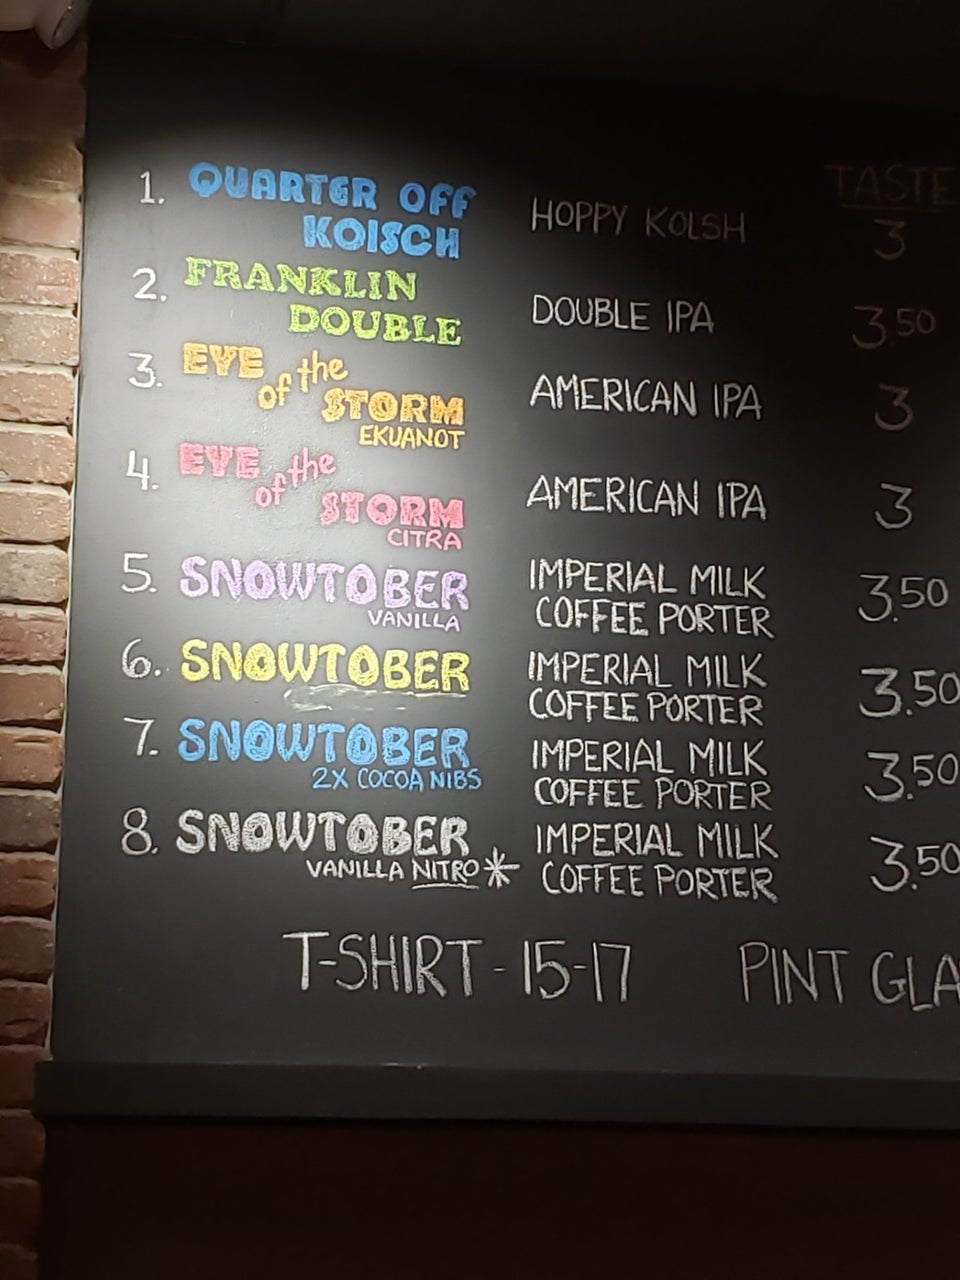 TASTE
1. QUARTER OFF
KOISCH
HOPPY KOLSH 3
2. FRANKLIN
DOUBLE
DOUBLE IPA 3.50
3. EYE of the
STORM
EKUANOT
AMERICAN IPA 3
4. EYE of the
STORM
CITRA
AMERICAN IPA 3
5. SNOWTOBER
VANILLA
IMPERIAL MILK
COFFEE PORTER 3.50
6. SNOWTOBER
IMPERIAL MILK
COFFEE PORTER 3.50
7. SNOWTOBER
2X COCOA NIBS
IMPERIAL MILK
COFFEE PORTER 3.50
8. SNOWTOBER
VANILLA NITRO*
IMPERIAL MILK
COFFEE PORTER 3.50
T-SHIRT - 15-17 PINT GLA